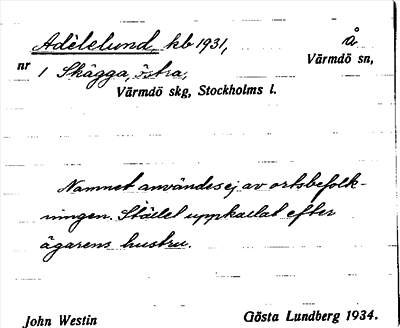 Adèlelund, kb 1931, å
nr Värmdö sn,
1 Skägga, östra,
Värmdö skg, Stockholms l.
Namnet användes ej av ortsbefolk-
ningen. Stället uppkallat efter
ägarens hustru.
John Westin Gösta Lundberg 1934.